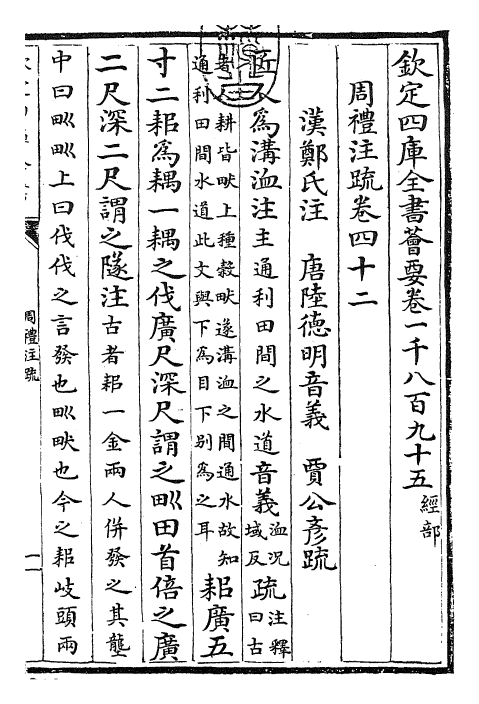 欽定四庫全書薈要卷一千八百九十五 經部
周禮注疏卷四十二
漢鄭氏注 唐陸德明音義 賈公彥疏
匠人為溝洫注主通利田間之水道音義洫况域反疏注釋曰古
者人耕皆畎上種榖畎遂溝洫之間通水故知
通利田間水道此文與下為目下别為之耳 耜廣五
寸二耜為耦一耦之伐廣尺深尺謂之𤰕田首倍之廣
二尺深二尺謂之隧注古者耜一金兩人併發之其壟
中曰𤰕𤰕上曰伐伐之言發也𤰕畎也今之耜岐頭兩
周禮注疏
一